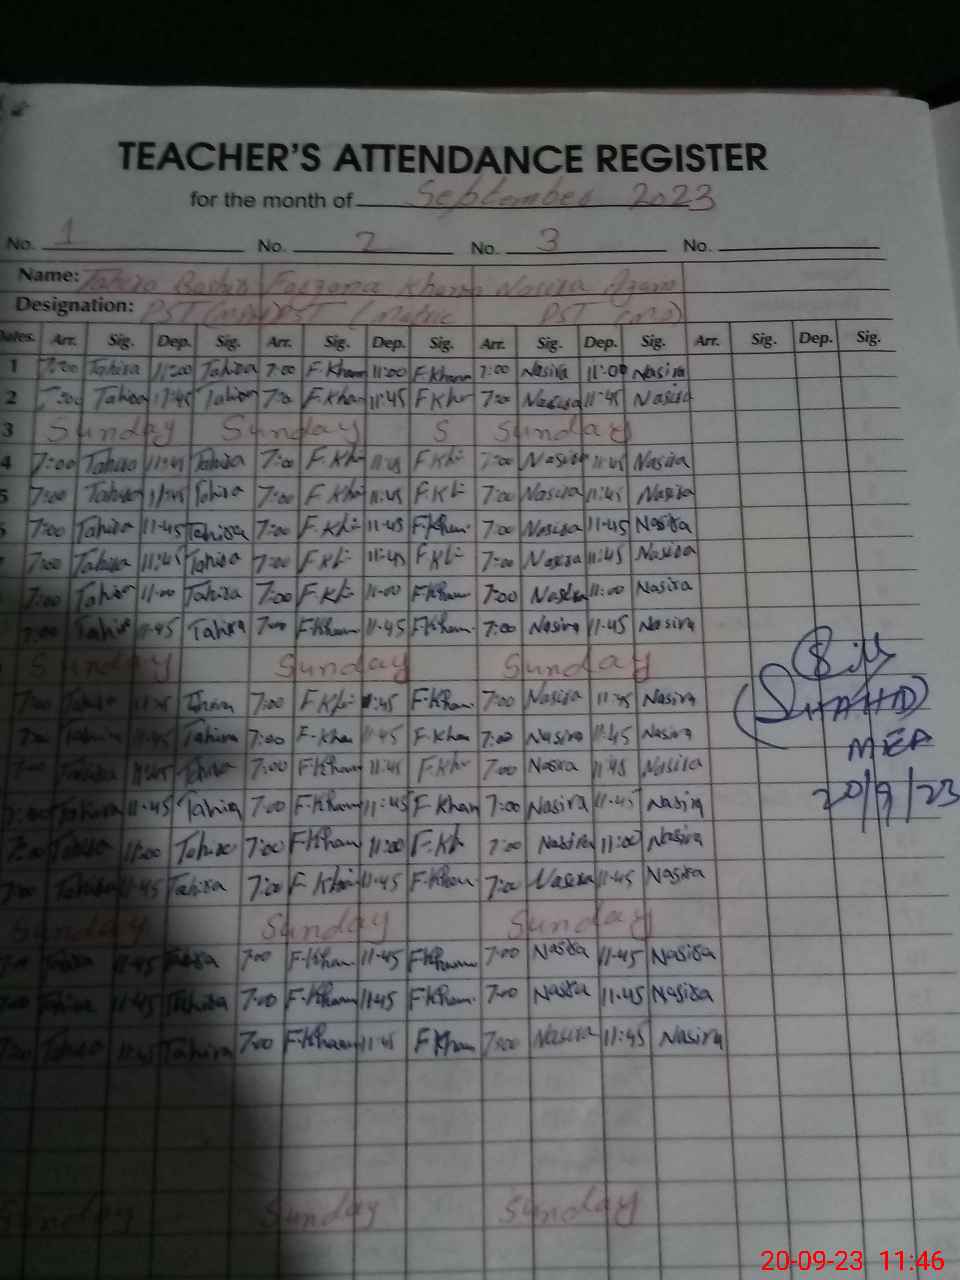 TEACHER'S ATTENDANCE REGISTER
for the month of September 2023
No. 1 No. 2 No. 3 No.
Name: Tahira Bashir Farzana Khanam Nasira Azam
Designation: PST PST (Matric PST
Dates. Arr. Sig. Dep. Sig. Arr. Sig. Dep. Sig. Arr. Sig. Dep. Sig. Arr. Sig. Dep. Sig.
1 7:00 Tahira 11:00 Tahira 7:00 F.Khan 11:00 F.Khan 7:00 Nasira 11:00 Nasira
2 7:00 Tahira 11:45 Tahira 7:00 F.Khan 11:45 F.Kh 7:00 Nasira 11:45 Nasira
3 Sunday Sunday S Sunday
4 7:00 Tahira 11:45 Tahira 7:00 F.Kh 11:45 F.Kh 7:00 Nasira 11:45 Nasira
5 7:00 Tahira 11:45 Tahira 7:00 F.Kh 11:45 F.Kh 7:00 Nasira 11:45 Nasira
7:00 Tahira 11-45 Tahira 7:00 F.Kh 11-45 F.Khan 7:00 Nasira 11-45 Nasira
7:00 Tahira 11:45 Tahira 7:00 F.Kh 11:45 F.Kh 7:00 Nasira 11:45 Nasira
7:00 Tahira 11:00 Tahira 7:00 F.Kh 11:00 F.Khan 7:00 Nasira 11:00 Nasira
7:00 Tahira 11-45 Tahira 7:00 F.Khan 11-45 F.Khan. 7:00 Nasira 11-45 Nasira
Sunday Sunday Sunday
7:00 Tahira 11:45 Tahira 7:00 F.Kh 11:45 F.Khan. 7:00 Nasira 11:45 Nasira
7:00 Tahira 11:45 Tahira 7:00 F-Khan 11:45 F.Khan 7:00 Nasira 11:45 Nasira
7:00 Tahira 11:45 Tahira 7:00 F.Khan 11:45 F.Kh 7:00 Nasira 11:45 Nasira
7:00 Tahira 11-45 Tahira 7:00 F.Khan 11:45 F.Khan 7:00 Nasira 11-45 Nasira
7:00 Tahira 11:00 Tahira 7:00 F.Khan 11:00 F.Kh 7:00 Nasira 11:00 Nasira
7:00 Tahira 11-45 Tahira 7:00 F.Khan 11-45 F.Khan 7:00 Nasira 11-45 Nasira
Sunday Sunday Sunday
7:00 Tahira 11-45 Tahira 7:00 F.Khan 11-45 F.Khan 7:00 Nasira 11-45 Nasira
7:00 Tahira 11-45 Tahira 7:00 F.Khan 11-45 F.Khan. 7:00 Nasira 11.45 Nasira
7:00 Tahira 11:45 Tahira 7:00 F.Khan 11:45 F.Khan 7:00 Nasira 11:45 Nasira
Sunday Sunday Sunday
(SHAHID)
MEA
20/9/23
20-09-23 11:46